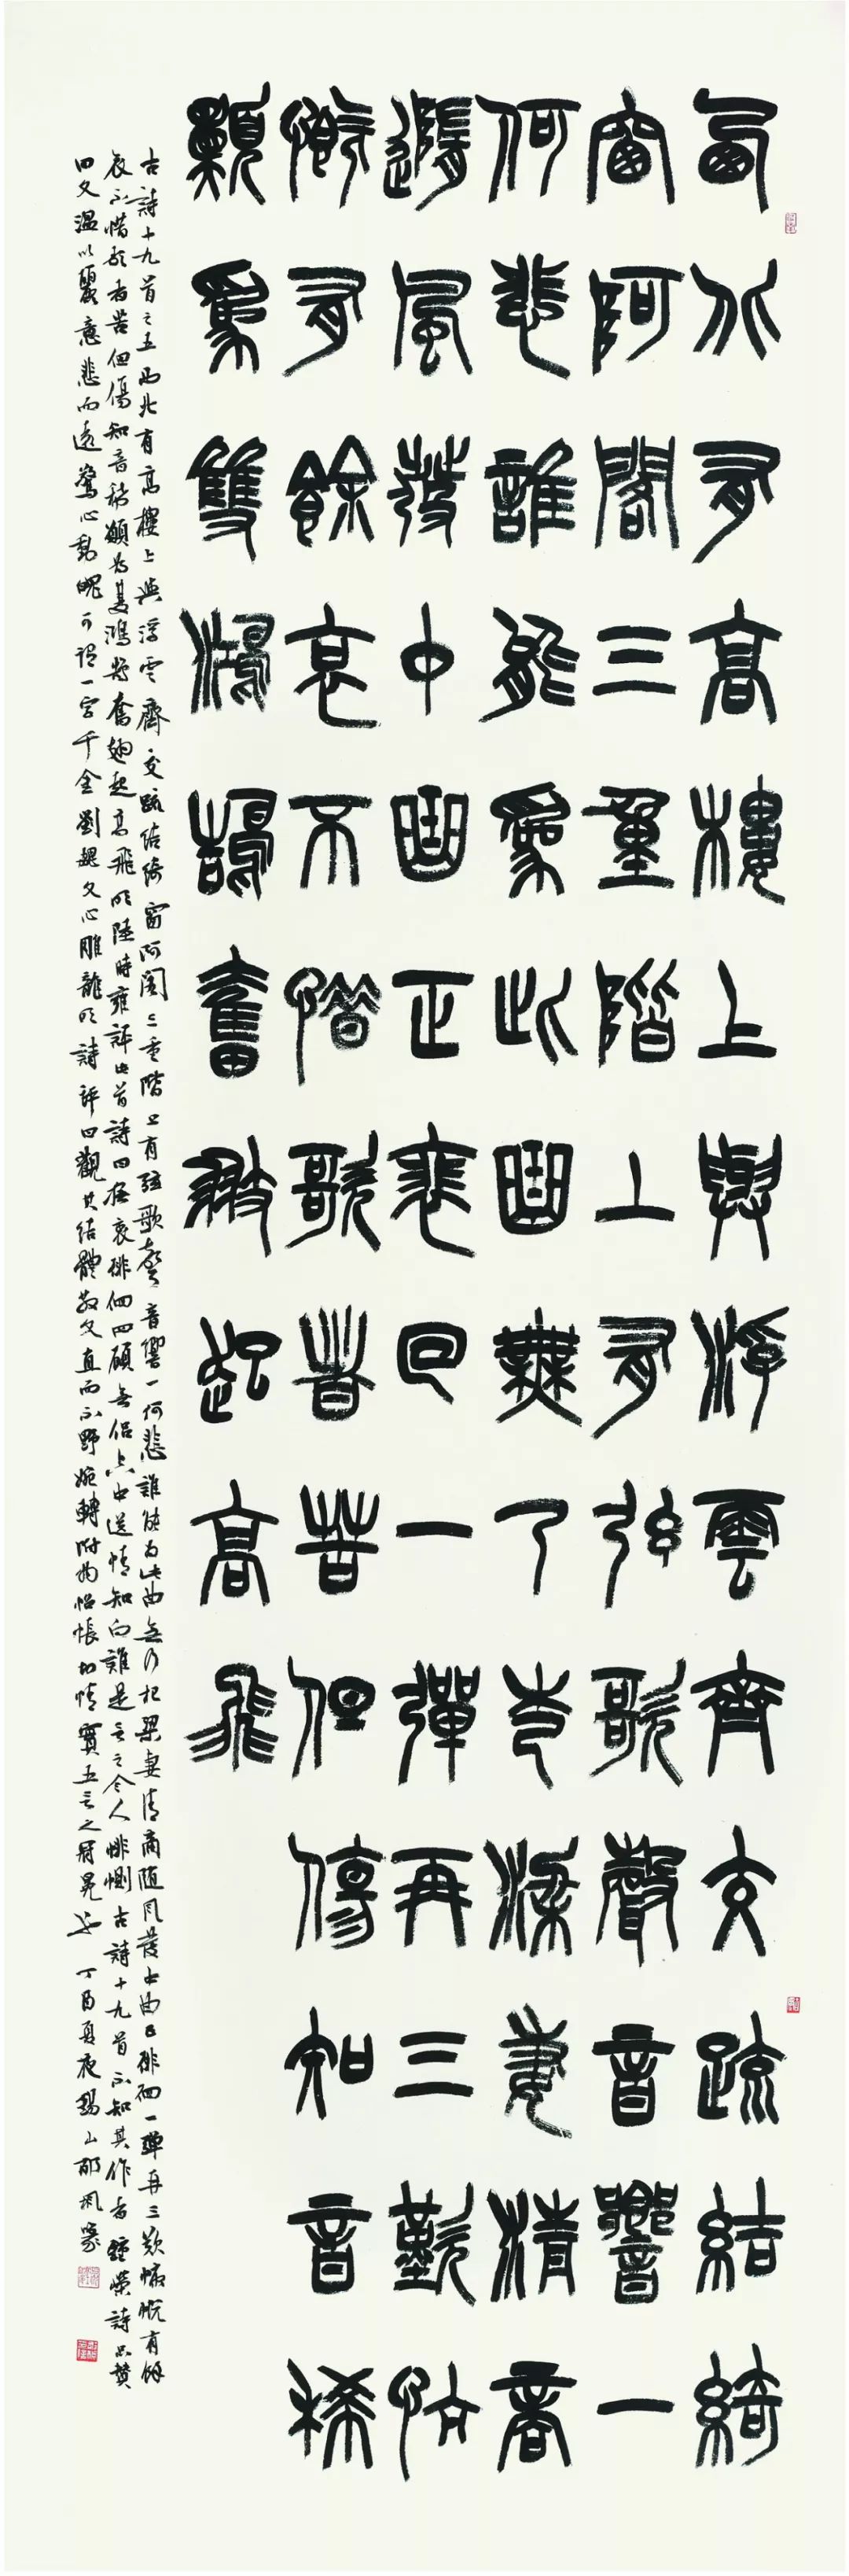 西北有高樓上與浮雲齊交疏結綺
窗阿閣三重階上有弦歌聲音響一
何悲誰能為此曲無乃杞梁妻清商
隨風發中曲正裴回一彈再三歎忼
慨有餘哀不惜歌者苦但傷知音稀
願為雙鴻鵠奮翅起高飛
古詩十九首之五西北有高樓上與浮雲齊交疏結綺窗阿閣三重階上有弦歌聲音響一何悲誰能為此曲無乃杞梁妻清商隨風發中曲正徘徊一彈再三歎慷慨有餘
哀不惜歌者苦但傷知音稀願為雙鴻鵠奮翅起高飛明陸時雍評此首詩曰撫衷徘徊四顧無侶空中送情知向誰是言之令人悱惻古詩十九首不知其作者鍾嶸詩品贊
曰文溫以麗意悲而遠驚心動魄可謂一字千金劉勰文心雕龍明詩評曰觀其結體散文直而不野婉轉附物怊悵切情實五言之冠冕也丁酉夏夜錫山